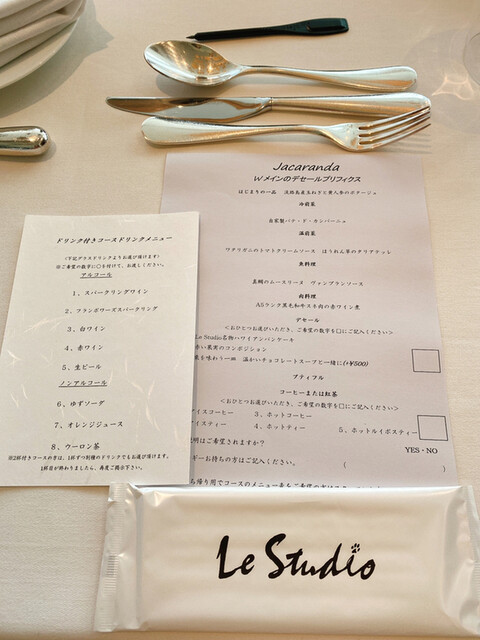 ドリンク付きコースドリンクメニュー
(下記グラスドリンクよりお選び頂けます)
※ご希望の数字に○を付けて、お渡しください。
アルコール
1、スパークリングワイン
2、フランボワーズスパークリング
3、白ワイン
4、赤ワイン
5、生ビール
ノンアルコール
6、ゆずソーダ
7、オレンジジュース
8、ウーロン茶
※2杯付きコースの方は、1杯ずつ別種のドリンクでもお選び頂けます。
1杯目が終わりましたら、再度ご提示下さい。
Jacaranda
Wメインのデセールプリフィクス
はじまりの一品 淡路島産玉ねぎと黄人参のポタージュ
冷前菜
自家製パテ・ド・カンパーニュ
温前菜
ワタリガニのトマトクリームソース ほうれん草のタリアテッレ
魚料理
真鯛のムースリーヌ ヴァンブランソース
肉料理
A5ランク黒毛和牛スネ肉の赤ワイン煮
デセール
<おひとつお選びいただき、ご希望の数字を□にご記入ください>
Le Studio名物ハワイアンパンケーキ
赤い果実のコンポジション
を味わう一皿 温かいチョコレートスープと一緒に(+¥500)
プティフル
コーヒーまたは紅茶
<おひとつお選びいただき、ご希望の数字を□にご記入ください>
アイスコーヒー 3、ホットコーヒー
イスティー 4、ホットティー 5、ホットルイボスティー
説明はご希望されますか? YES・NO
ギーお持ちの方はご記入ください。 (
Le Studio